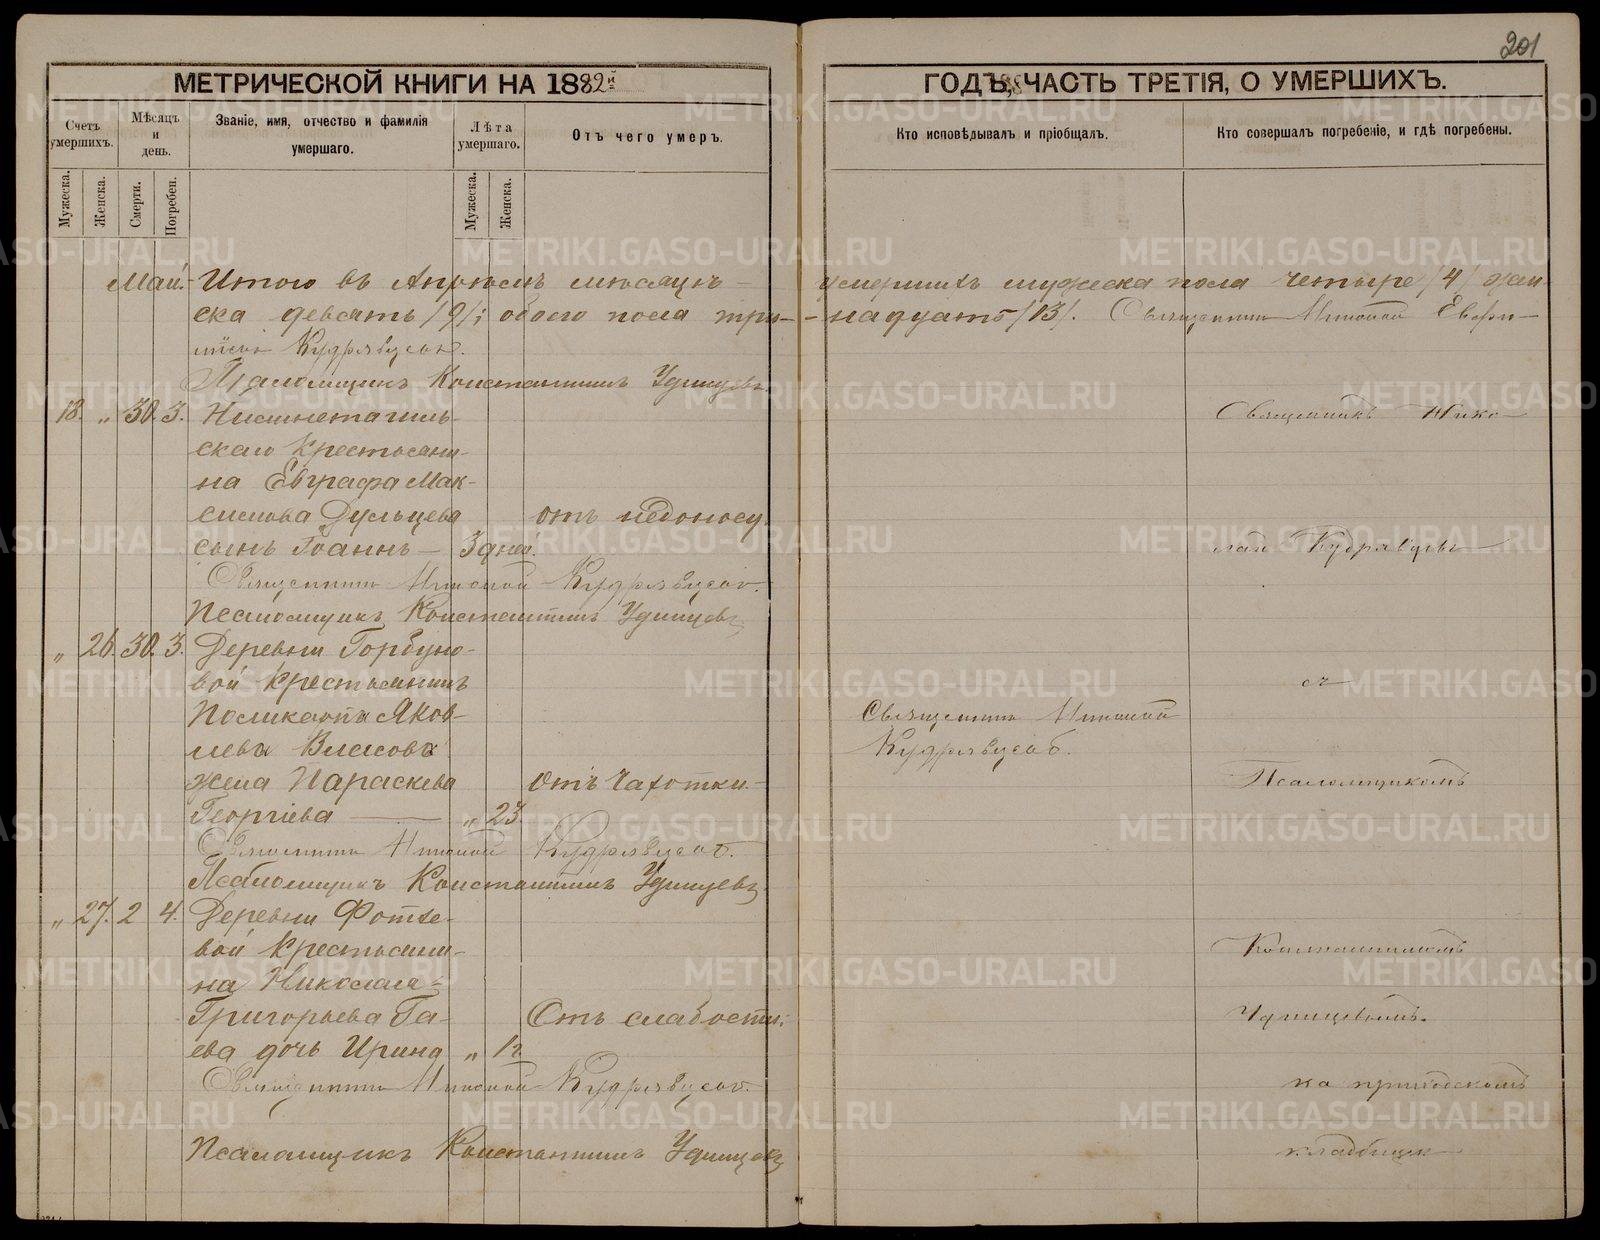 201
МЕТРИЧЕСКОЙ КНИГИ НА 1882й
ГОДЪ, ЧАСТЬ ТРЕТІЯ, О УМЕРШИХЪ.
Счетъ умершихъ.
Мѣсяцъ и день.
Званіе, имя, отчество и фамилія умершаго.
Лѣта умершаго.
Отъ чего умеръ.
Кто исповѣдывалъ и пріобщалъ.
Кто совершалъ погребеніе, и гдѣ погребены.
Мужеска.
Женска.
Смерти.
Погребен.
Мужеска.
Женска.
Май. Итого въ Апрѣлѣ мѣсяцѣ умершихъ мужеска пола четыре /4/ жен-
ска девять /9/; обоего пола три-надцать /13/. Священникъ Николай
Кудрявцовъ.
Псаломщикъ Константинъ Удинцевъ
18. „ 30. 3. Нижнетагиль-
скаго крестьяни-
на Евграфа Мак-
симова Дульцева отъ недоносу
сынъ Іоаннъ — 3 дней.
Священникъ Николай Кудрявцовъ.
Псаломщикъ Константинъ Удинцевъ
„ 26. 30. 3. Деревни Горбуно-
вой крестьянина
Поликарпа Яков-
лева Власова
жена Параскева отъ чахотки
Георгіева — „ 23.
Священникъ Николай Кудрявцовъ.
Псаломщикъ Константинъ Удинцевъ
„ 27. 2 4. Деревни Фотѣе-
вой крестьяни-
на Николая
Григорьева Га- Отъ слабости;
ева дочь Ирина „ 1 г.
Священникъ Николай Кудрявцовъ.
Псаломщикъ Константинъ Удинцевъ
Священникъ Николай
Кудрявцовъ.
Священникъ Нико-
лай Кудрявцовъ
съ
Псаломщикомъ
Константиномъ
Удинцевымъ.
на приходскомъ
кладбищѣ
METRIKI.GASO-URAL.RU